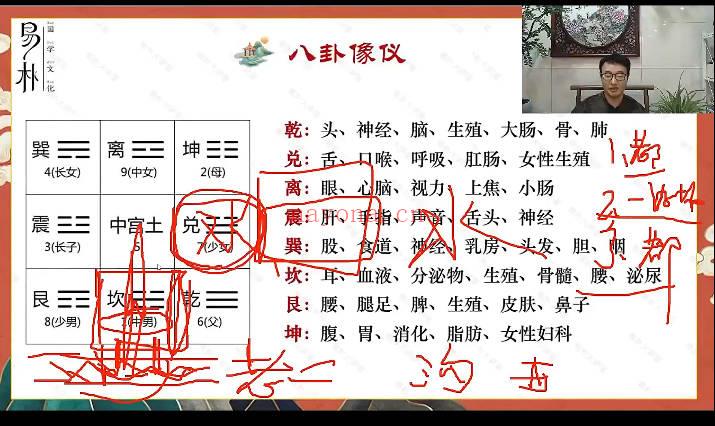 易朴
国学文化
八卦像仪
巽
4(长女)
离
9(中女)
坤
2(母)
震
3(长子)
中宫土
5
兑
7(少女)
艮
8(少男)
坎
1(中男)
乾
6(父)
乾：头、神经、脑、生殖、大肠、骨、肺
兑：舌、口喉、呼吸、肛肠、女性生殖
离：眼、心脑、视力、上焦、小肠
震：肝、手指、声音、舌头、神经
巽：股、食道、神经、乳房、头发、胆、咽
坎：耳、血液、分泌物、生殖、骨髓、腰、泌尿
艮：腰、腿足、脾、生殖、皮肤、鼻子
坤：腹、胃、消化、脂肪、女性妇科
1.都
3.都
沟